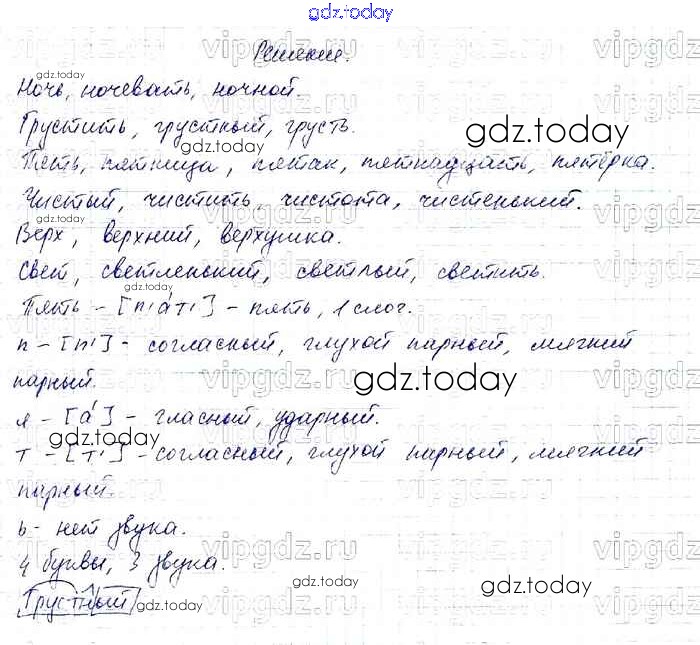 gdz.today
Решение.
Ночь, ночевать, ночной.
Грустить, грустный, грусть.
Пять, пятница, пятак, пятнадцать, пятёрка.
Чистый, чистить, чистота, чистенький.
Верх, верхний, верхушка.
Свет, светленький, светлый, светить.
Пять – [п'а́т'] – пять, 1 слог.
п – [п'] – согласный, глухой парный, мягкий
парный.
я – [а́] – гласный, ударный.
т – [т'] – согласный, глухой парный, мягкий
парный.
ь – нет звука.
4 буквы, 3 звука.
Грустный